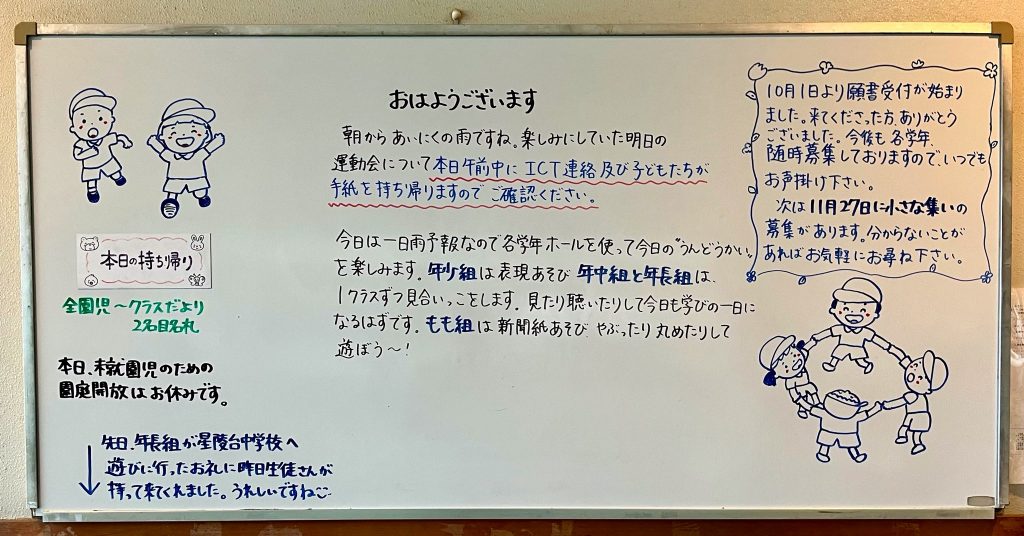 おはようございます
朝からあいにくの雨ですね。楽しみにしていた明日の
運動会について本日午前中にICT連絡及び子どもたちが
手紙を持ち帰りますのでご確認ください。
今日は一日雨予報なので各学年ホールを使って今日の“うんどうかい„
を楽しみます。年少組は表現あそび 年中組と年長組は、
1クラスずつ見合いっこします。見たり聴いたりして今日も学びの一日に
なるはずです。もも組は新聞紙あそび やぶったり丸めたりして
遊ぼう〜!
本日の持ち帰り
全園児〜クラスだより
2名目名札
本日、未就園児のための
園庭開放はお休みです。
先日、年長組が星陵台中学校へ
遊びに行ったお礼に昨日生徒さんが
持って来てくれました。うれしいですね
10月1日より願書受付が始まり
ました。来てくださった方、ありがとう
ございました。今後も各学年、
随時募集しておりますので、いつでも
お声掛け下さい。
次は11月27日に小さな集いの
募集があります。分からないことが
あればお気軽にお尋ね下さい。